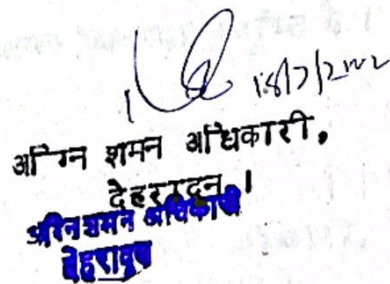 18/7/2002
अग्नि शमन अधिकारी,
देहरादून ।
अग्निशमन अधिकारी
देहरादून